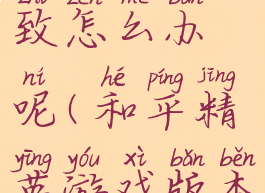 致怎么办
ní hé píng jīng
呢(和平精
yīng yóu xì bǎn běn
英游戏版本